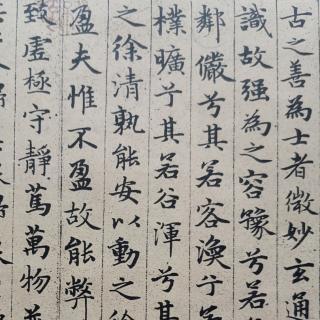 古之善為士者微妙玄通
識故强為之容豫兮若
鄰儼兮其若容渙兮若
樸曠兮其若谷渾兮其
之徐清孰能安以動之徐
盈夫惟不盈故能弊
致虛極守靜篤萬物並